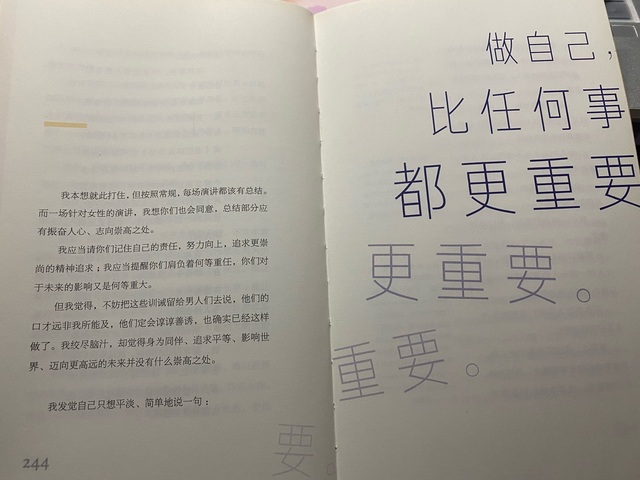 我本想就此打住，但按照常规，每场演讲都该有总结。
而一场针对女性的演讲，我想你们也会同意，总结部分应
有振奋人心、志向崇高之处。
我应当请你们记住自己的责任，努力向上，追求更崇
尚的精神追求；我应当提醒你们肩负着何等重任，你们对
于未来的影响又是何等重大。
但我觉得，不妨把这些训诫留给男人们去说，他们的
口才远非我所能及，他们定会谆谆善诱，也确实已经这样
做了。我绞尽脑汁，却觉得身为同伴、追求平等、影响世
界、迈向更高远的未来并没有什么崇高之处。
我发觉自己只想平淡、简单地说一句：
244
做自己，
比任何事
都更重要
更重要。
重要。
要。